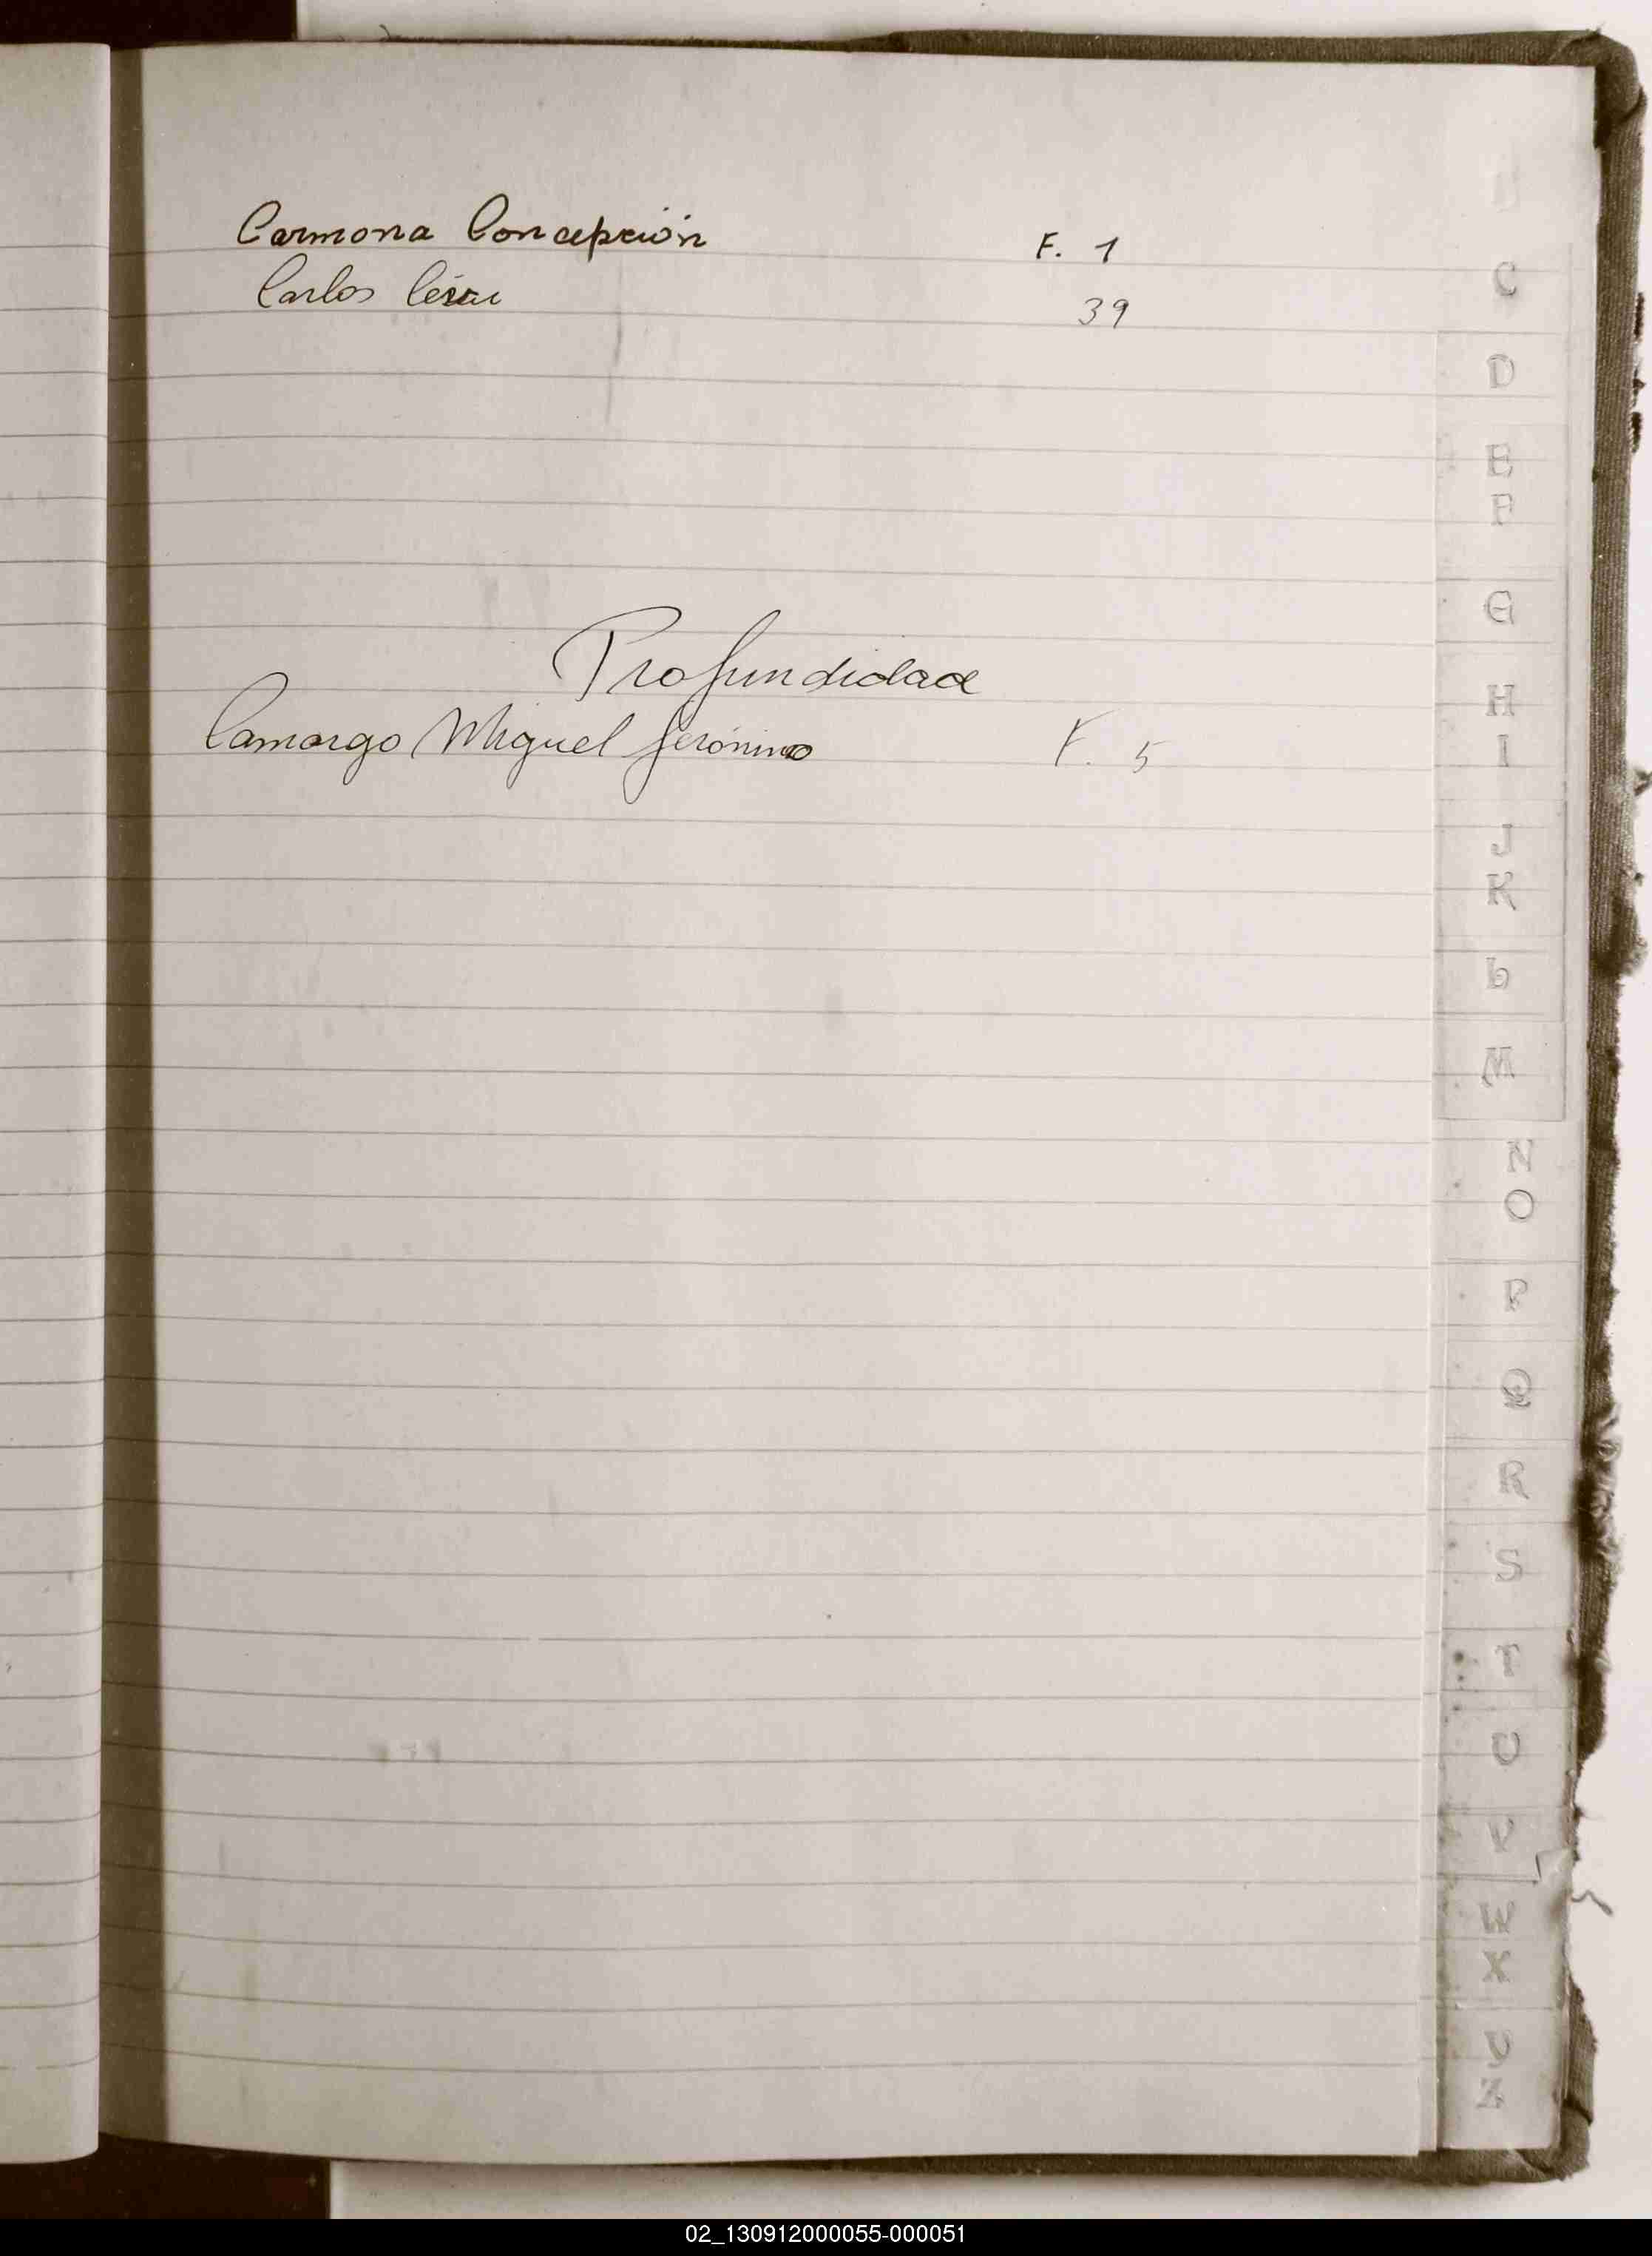 Carmona Concepción F. 1
Carlos César 39
Profundidad
Camargo Miguel Jerónimo F. 5
C
D
E
F
G
H
I
J
K
L
M
N
O
P
Q
R
S
T
U
V
W
X
Z
02_130912000055-000051